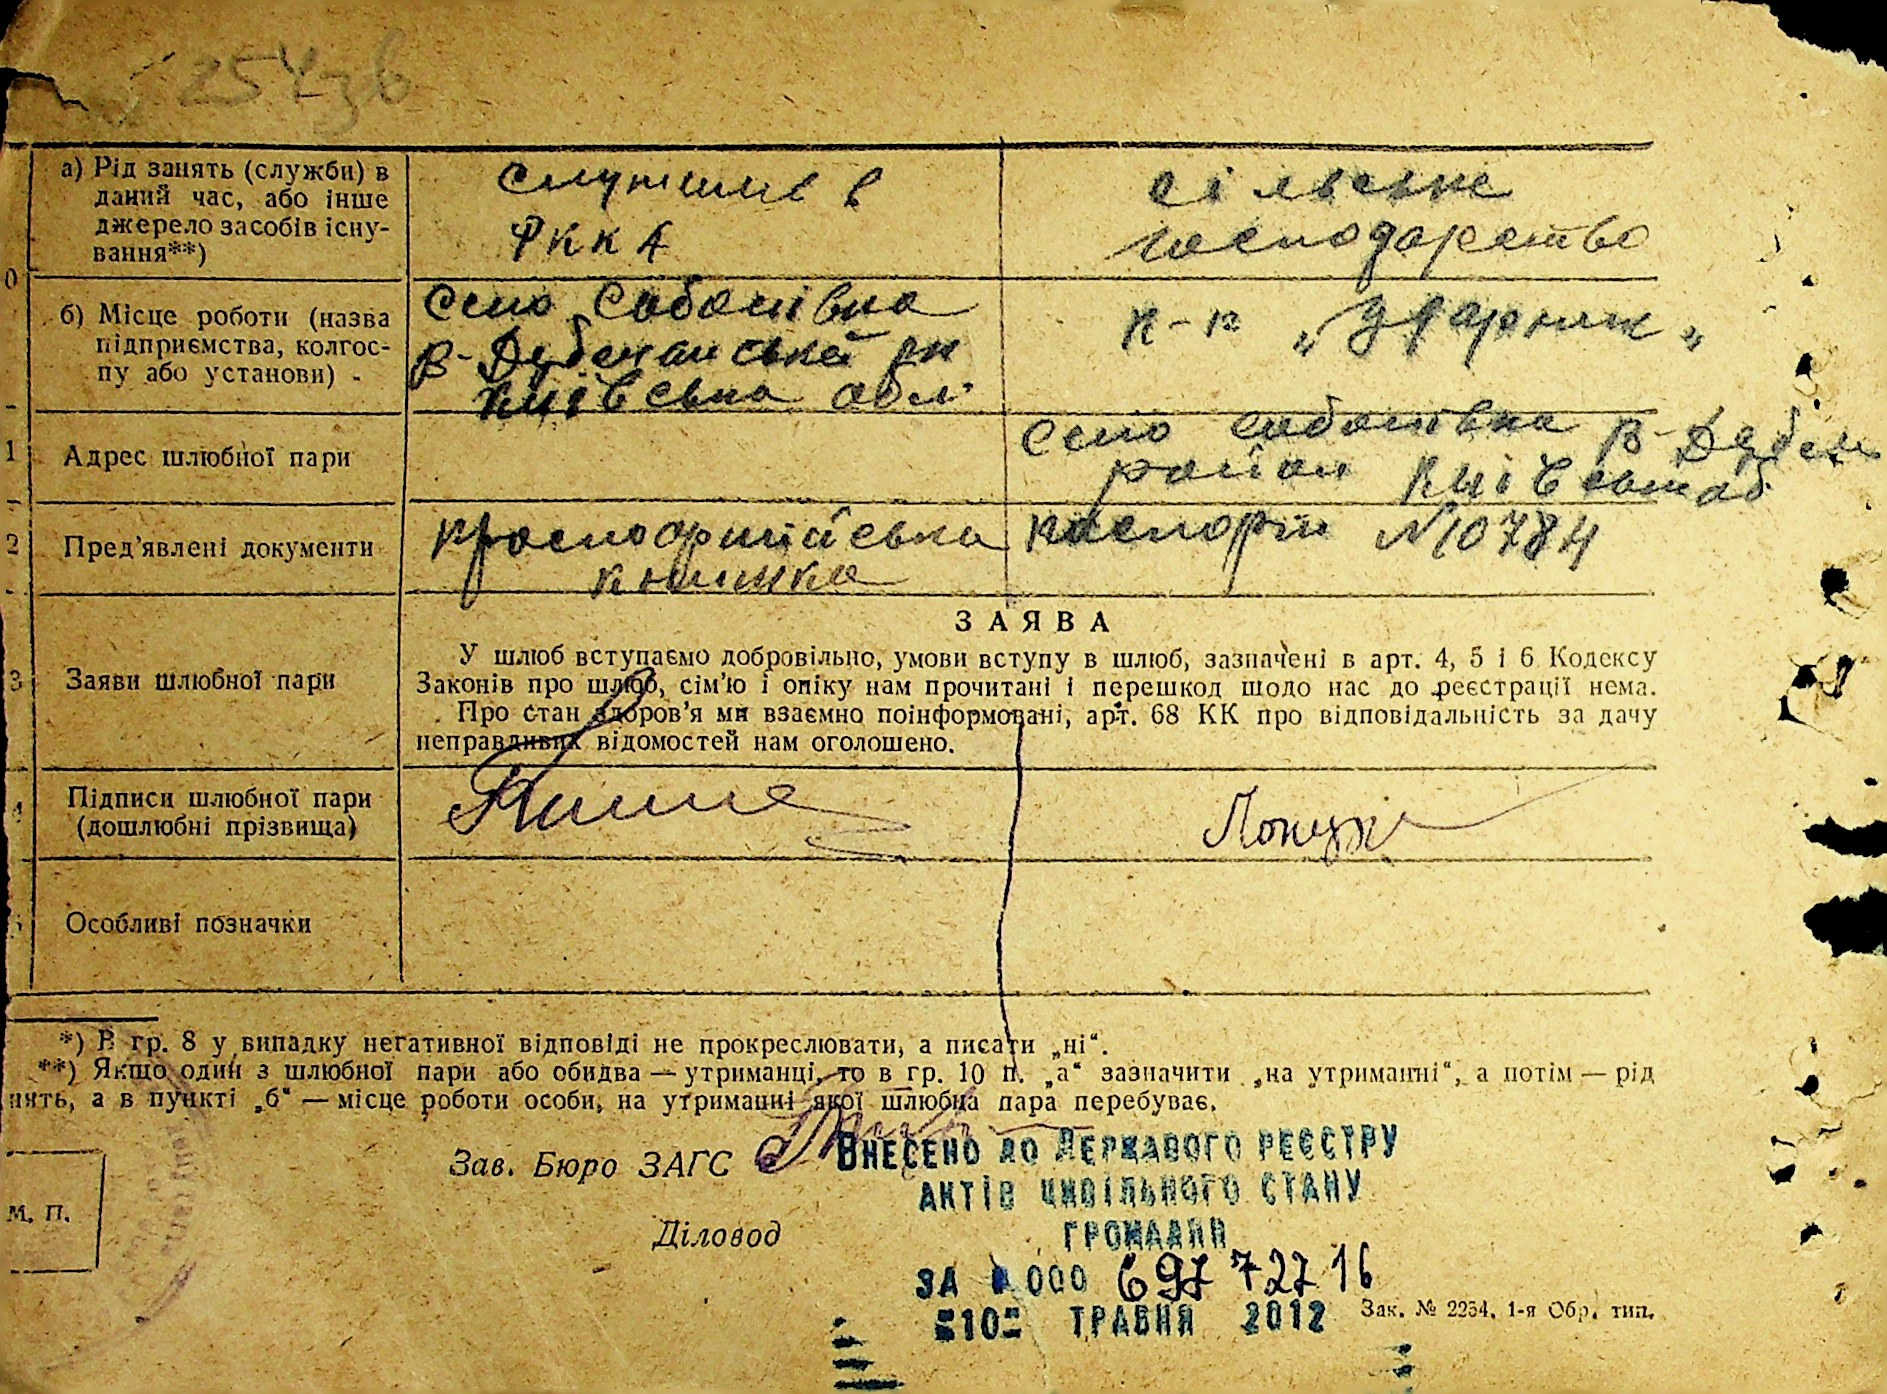 254зв
а) Рід занять (служби) в
даний час, або інше
джерело засобів існу-
вання**)
служив в
РККА
сільське
господарство
0
б) Місце роботи (назва
підприємства, колгос-
пу або установи)
село
В-
Київська обл.
к-п „Ударник„
1
Адрес шлюбної пари
село В-
район
2
Пред’явлені документи
красноармійська
книжка
паспорт №10784
3
Заяви шлюбної пари
ЗАЯВА
У шлюб вступаємо добровільно, умови вступу в шлюб, зазначені в арт. 4, 5 і 6 Кодексу
Законів про шлюб, сім’ю і опіку нам прочитані і перешкод щодо нас до реєстрації нема.
Про стан здоров’я ми взаємно поінформовані, арт. 68 КК про відповідальність за дачу
неправдивих відомостей нам оголошено.
4
Підписи шлюбної пари
(дошлюбні прізвища)
Особливі позначки
*) В гр. 8 у випадку негативної відповіді не прокреслювати, а писати „ні“.
**) Якщо один з шлюбної пари або обидва — утриманці, то в гр. 10 п. „а“ зазначити „на утриманні“, а потім — рід
нять, а в пункті „б“ — місце роботи особи, на утриманні якої шлюбна пара перебуває.
Зав. Бюро ЗАГС
Діловод
М. П.
ВНЕСЕНО ДО ДЕРЖАВОГО РЕЄСТРУ
АКТІВ ЦИВІЛЬНОГО СТАНУ
ГРОМАДЯН
ЗА № 000 69772716
10 ТРАВНЯ 2012
Зак. № 2254. 1-я Обр. тип.